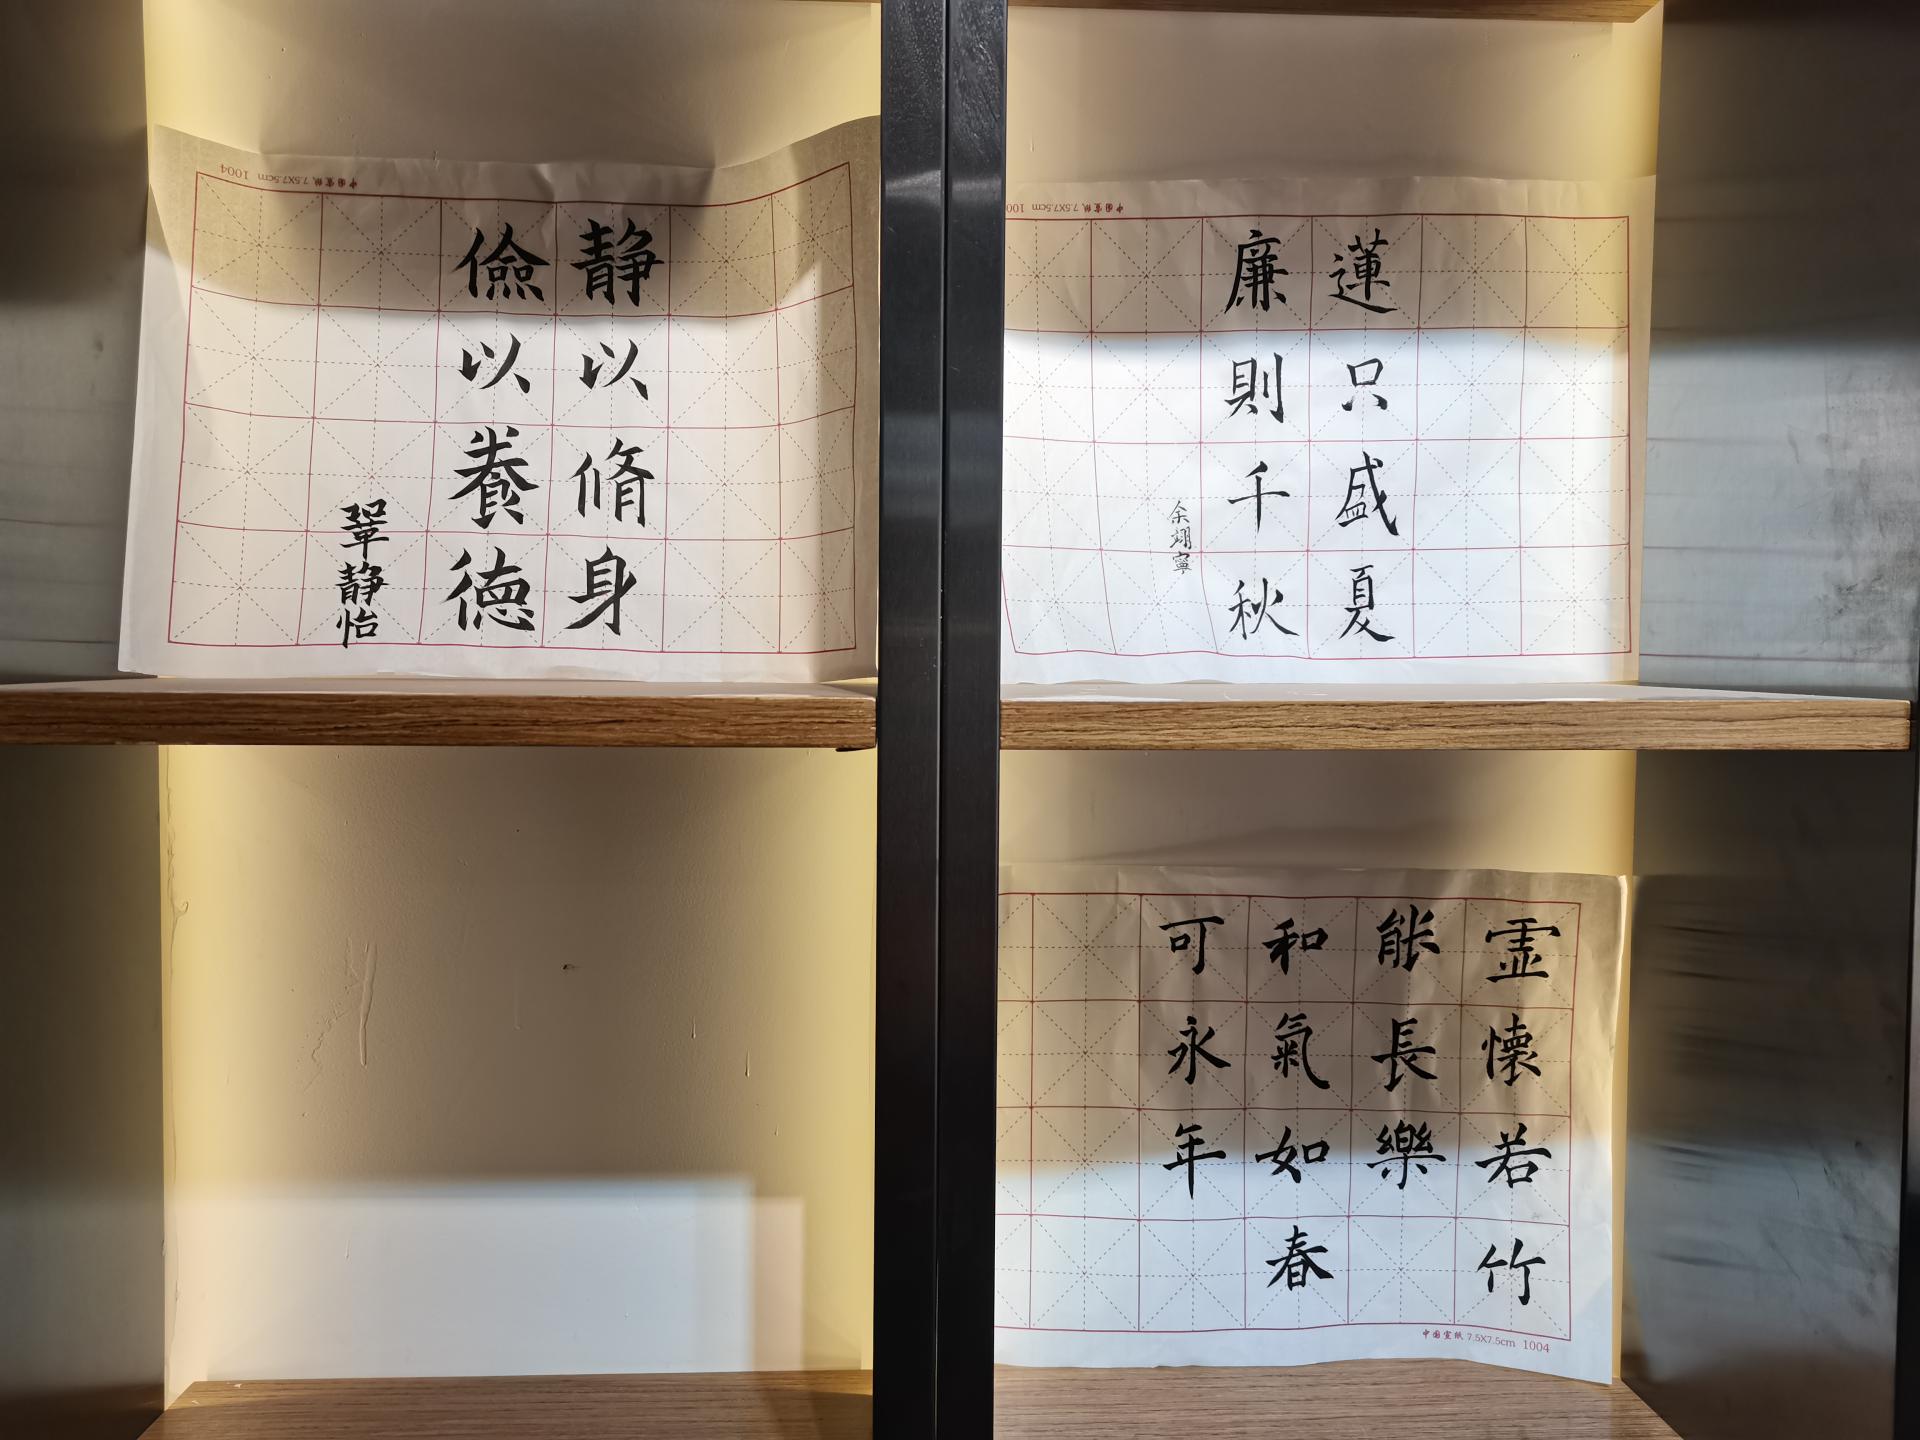 中国宣纸 7.5X7.5cm 1004
静以脩身
儉以養德
鞏静怡
中国宣纸 7.5X7.5cm 100
蓮只盛夏
廉則千秋
余翊寧
霊懷若竹
能長樂
和氣如春
可永年
中国宣纸 7.5X7.5cm 1004